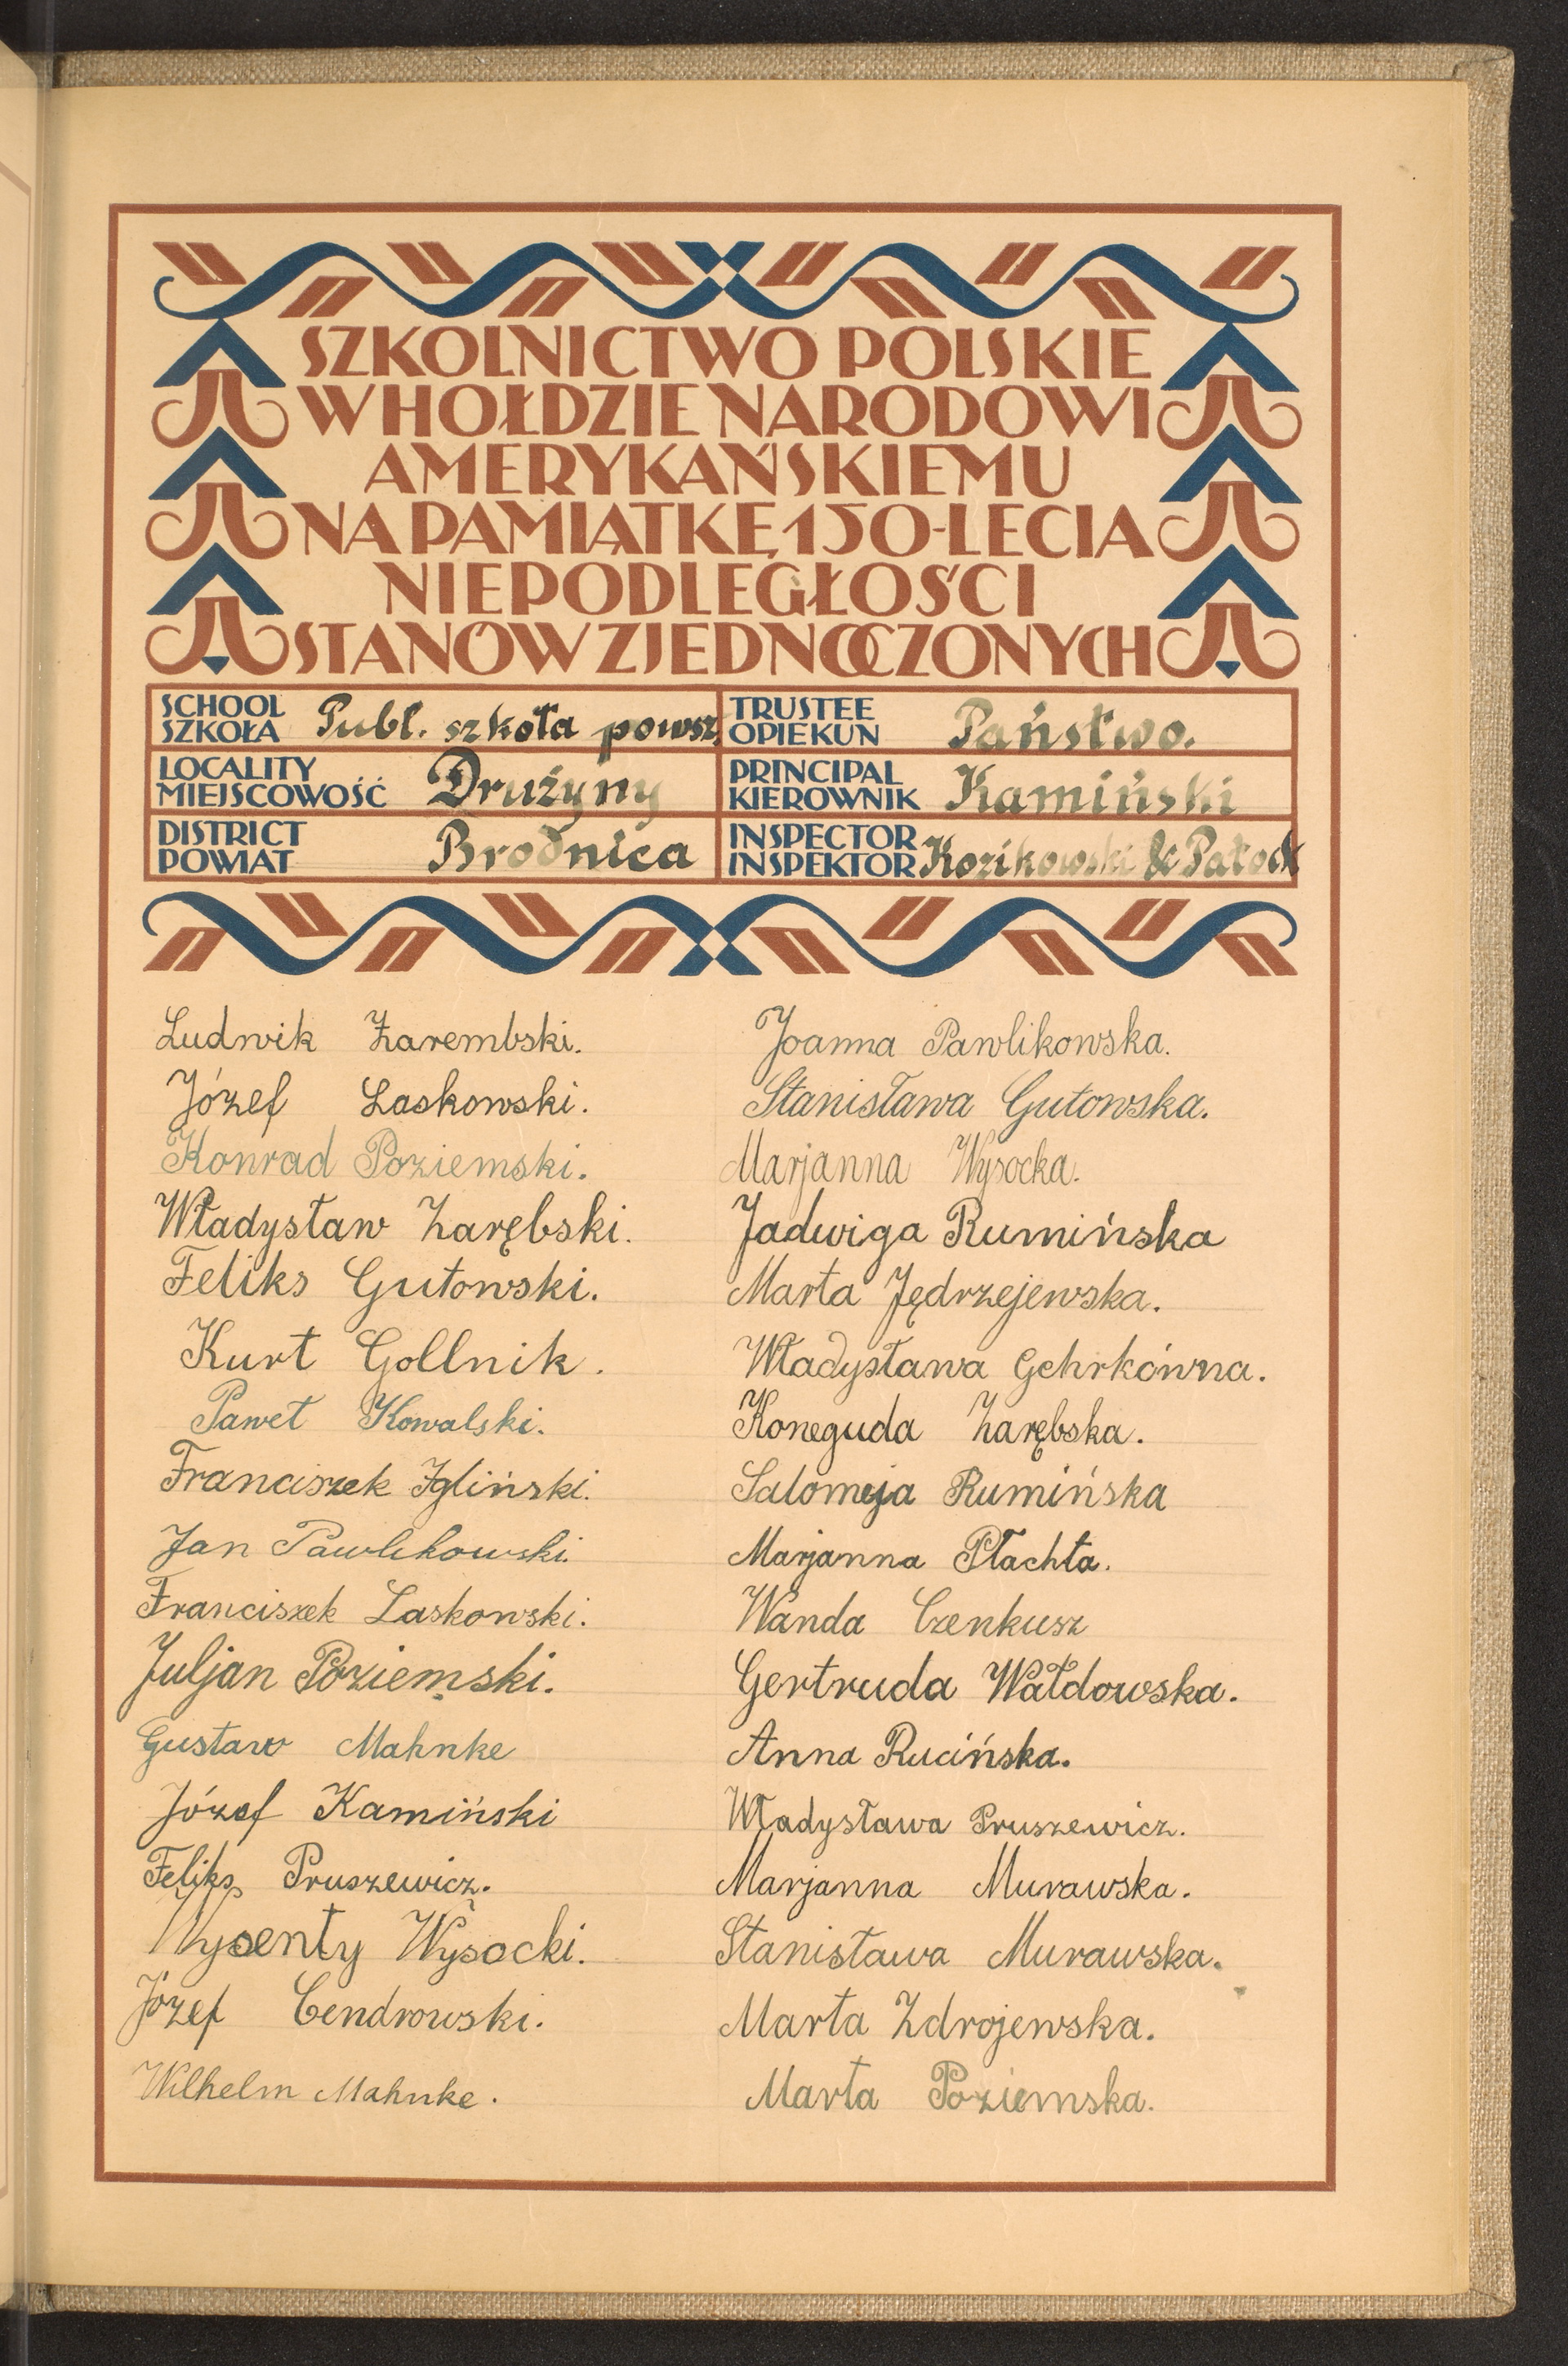 SZKOLNICTWO POLSKIE
W HOŁDZIE NARODOWI
AMERYKAŃSKIEMU
NA PAMIĄTKĘ 150-LECIA
NIEPODLEGŁOŚCI
STANÓW ZJEDNOCZONYCH
SCHOOL
SZKOŁA Publ. szkoła powsz.
TRUSTEE
OPIEKUN Państwo.
LOCALITY
MIEJSCOWOŚĆ Drużyny
PRINCIPAL
KIEROWNIK Kamiński
DISTRICT
POWIAT Brodnica
INSPECTOR
INSPEKTOR Kozikowski & Pałock
Ludwik Zarembski.
Józef Laskowski.
Konrad Poziemski.
Władysław Zarębski.
Feliks Gutowski.
Kurt Gollnik.
Paweł Kowalski.
Franciszek Igliński.
Jan Pawlikowski.
Franciszek Laskowski.
Juljan Poziemski.
Gustaw Mahnke
Józef Kamiński
Feliks Pruszewicz.
Wysenty Wysocki.
Józef Cendrowski.
Wilhelm Mahnke.
Joanna Pawlikowska.
Stanisława Gutowska.
Marjanna Wysocka.
Jadwiga Rumińska
Marta Jędrzejewska.
Władysława Gehrkówna.
Koneguda Zarębska.
Salomeja Rumińska
Marjanna Płachta.
Wanda Czenkusz
Gertruda Wałdowska.
Anna Rucińska.
Władysława Pruszewicz.
Marjanna Murawska.
Stanisława Murawska.
Marta Zdrojewska.
Marta Poziemska.